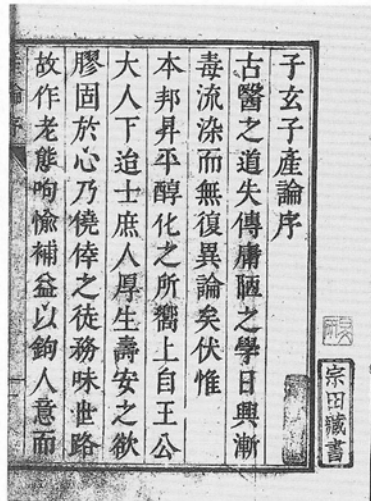 子玄子產論序
古醫之道失傳庸陋之學日興漸
毒流染而無復異論矣伏惟
本邦昇平醇化之所嚮上自王公
大人下迨士庶人厚生壽安之欲
膠固於心乃僥倖之徒務味世路
故作老態呴愉補益以鉤人意而
宗田藏書